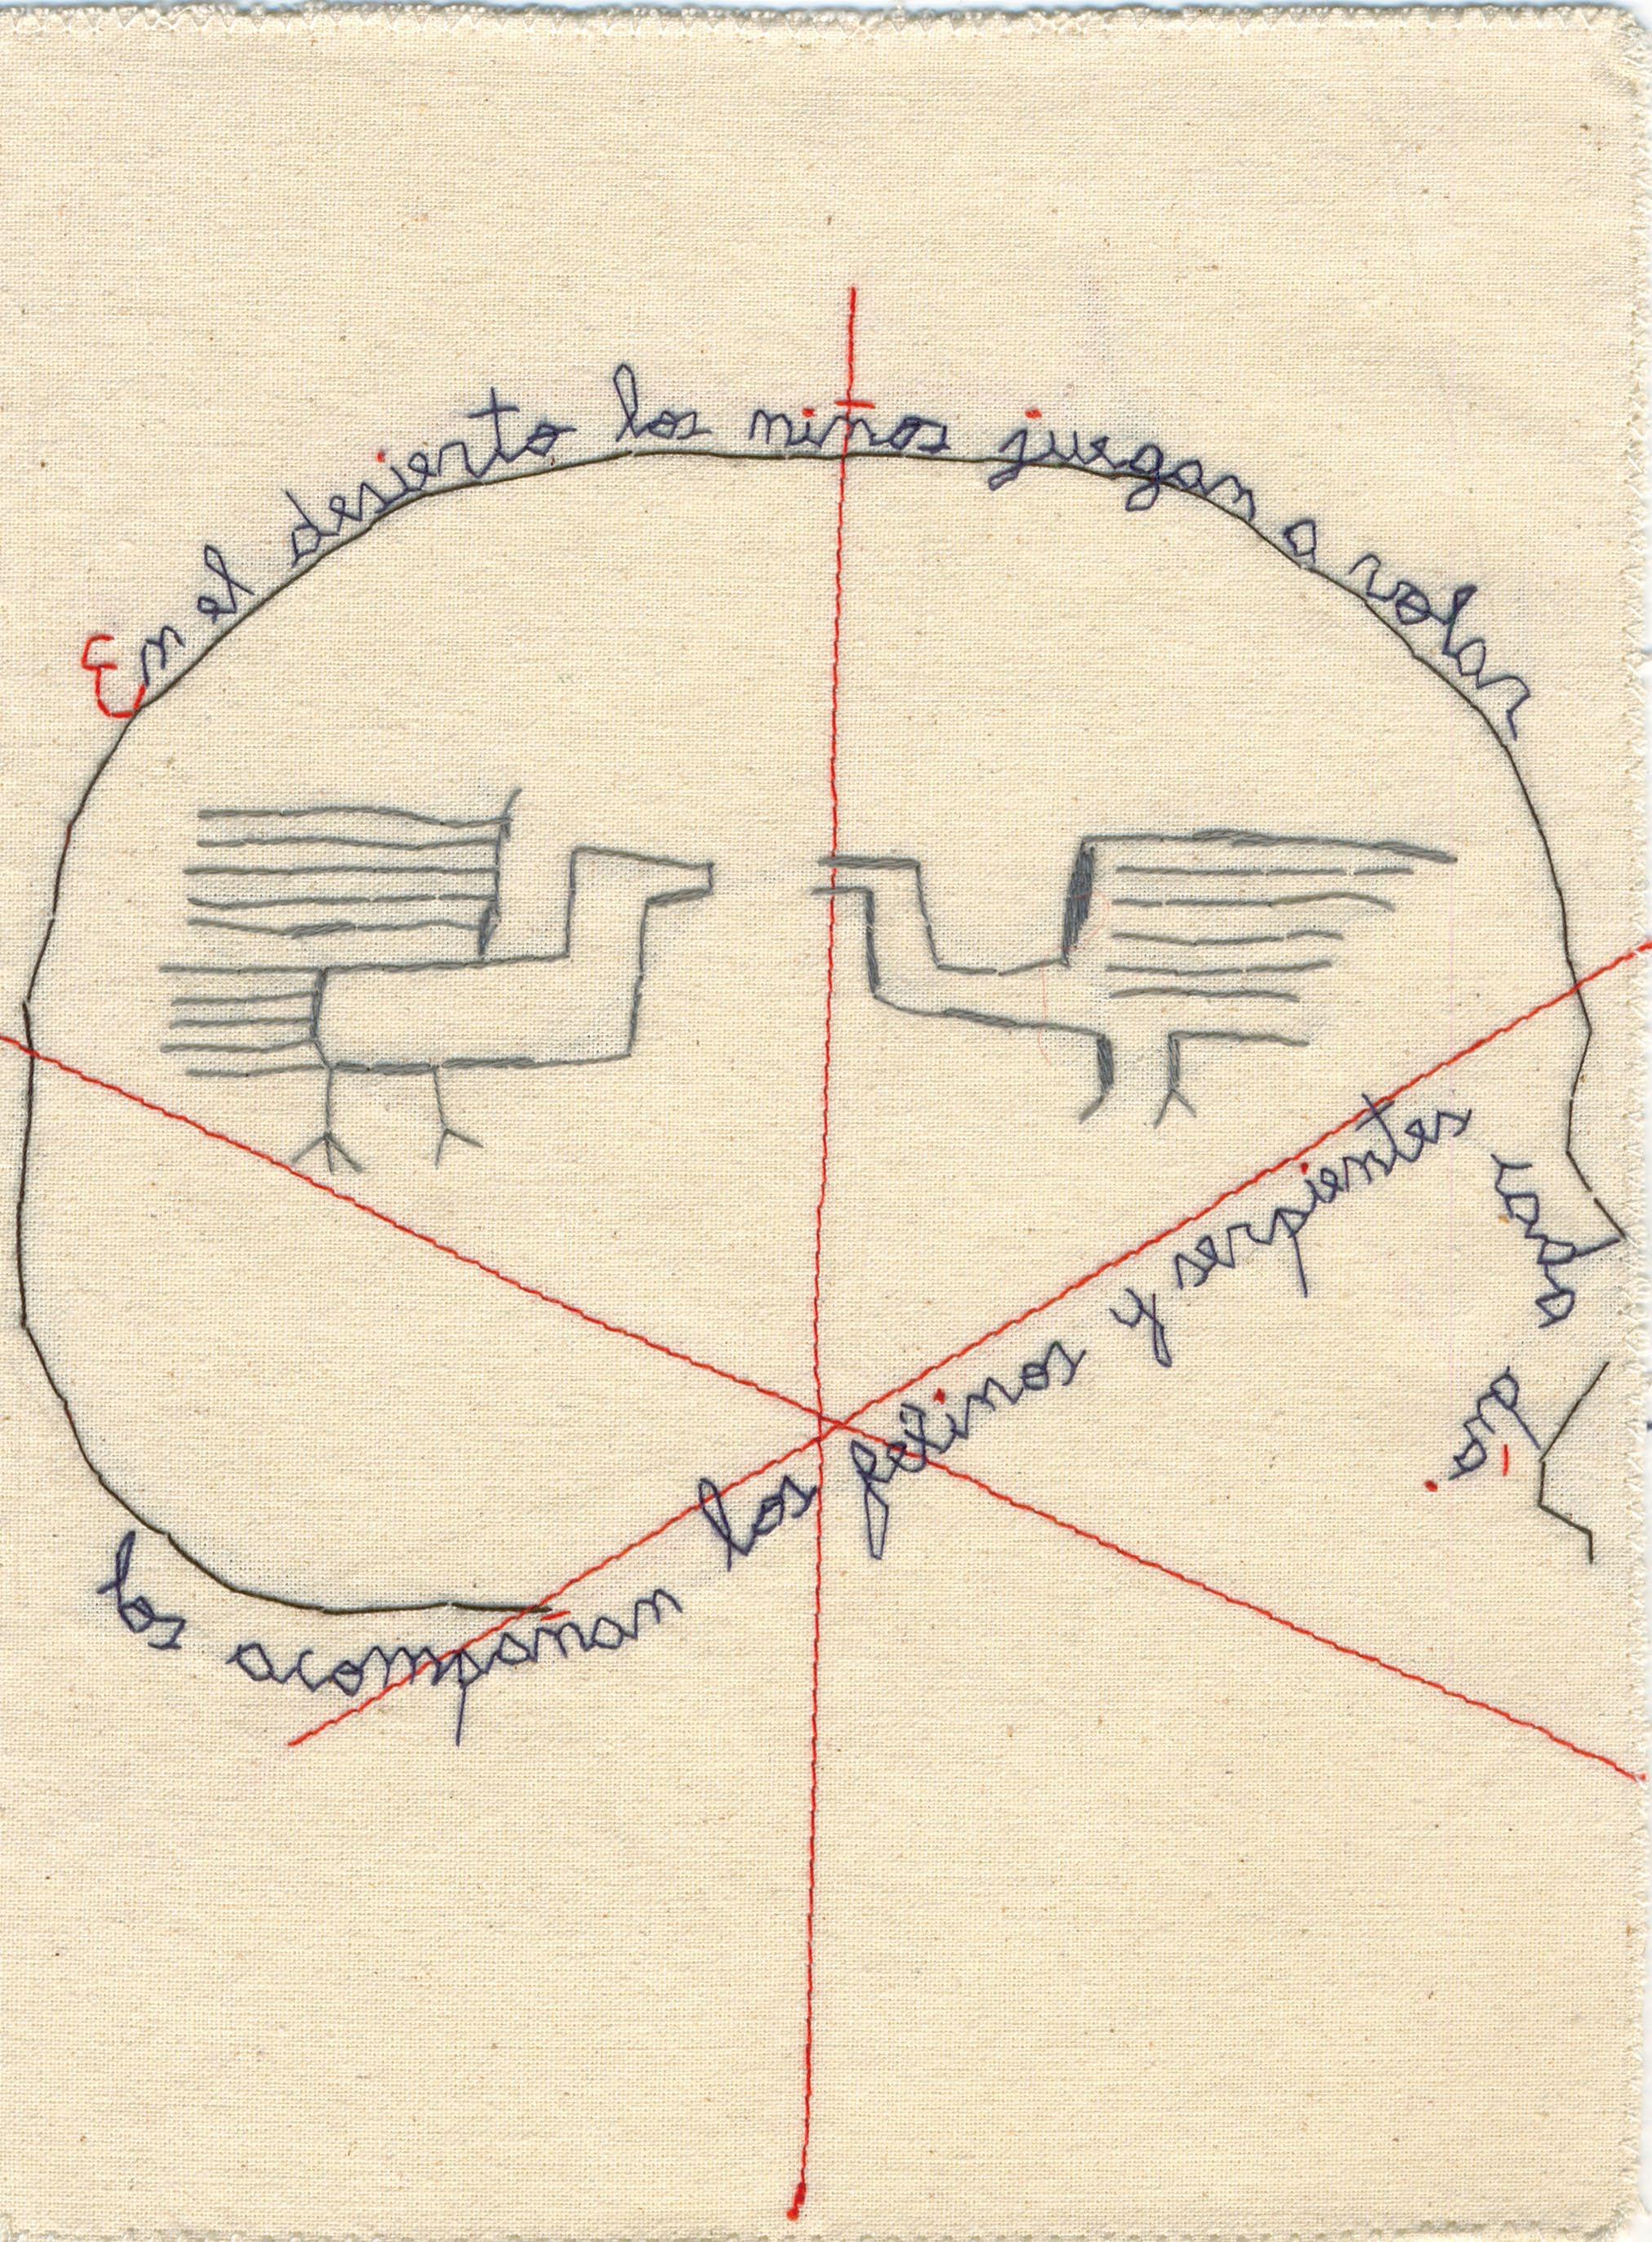 En el desierto los niños juegan a volar
los acompañan los felinos y serpientes
cada
día.